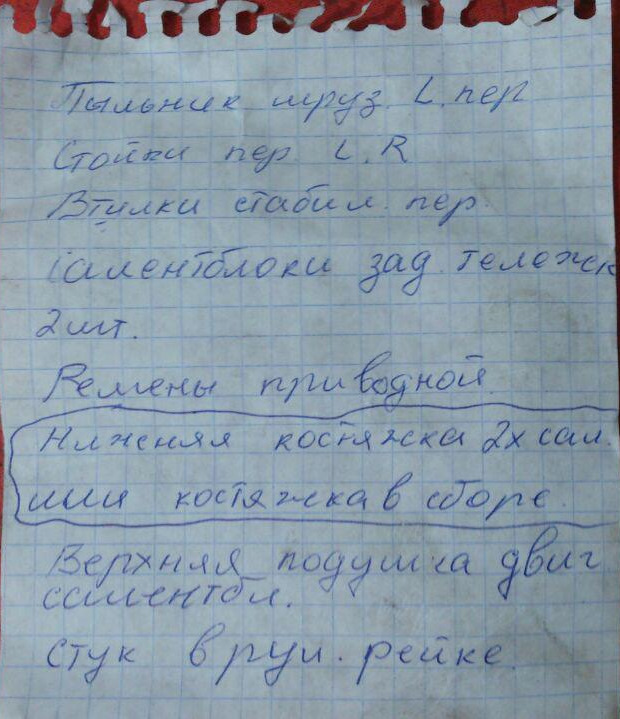 Пыльник шруз. L. пер
Стойки пер. L. R
Втулки стабил. пер.
Салентблоки зад. тележк
2 шт.
Ремены приводной
Нижняя костяжка 2х сал.
или костяжка в сборе.
Верхняя подушка двиг
салентбл.
стук в рул. рейке.